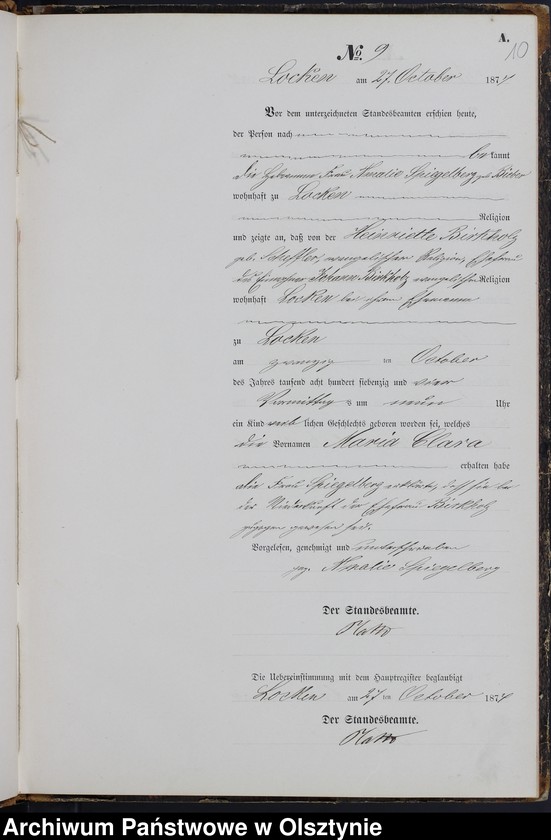 A.
10
No. 9
Locken am 27. October 1874
Vor dem unterzeichneten Standesbeamten erschien heute,
der Person nach
be kannt
die Hebamme Frau Amalie Spiegelberg geb.
wohnhaft zu Locken
Religion
und zeigte an, daß von der Heinriette Birkholz
geb. evangelischer Religion, Ehefrau
des Johann Birkholz evangelischer Religion
wohnhaft Locken bei ihrem Ehemann
zu Locken
am zwanzig ten October
des Jahres tausend acht hundert siebenzig und vier
Vormittag s um neun Uhr
ein Kind weib lichen Geschlechts geboren worden sei, welches
die Vornamen Maria Clara
erhalten habe
die Frau Spiegelberg erklärte, daß sie bei
der Niederkunft der Ehefrau Birkholz
zugegen gewesen sei.
Vorgelesen, genehmigt und unterschrieben
gez. Amalie Spiegelberg
Der Standesbeamte.
Die Uebereinstimmung mit dem Hauptregister beglaubigt
Locken am 27 ten October 1874
Der Standesbeamte.
Archiwum Państwowe w Olsztynie